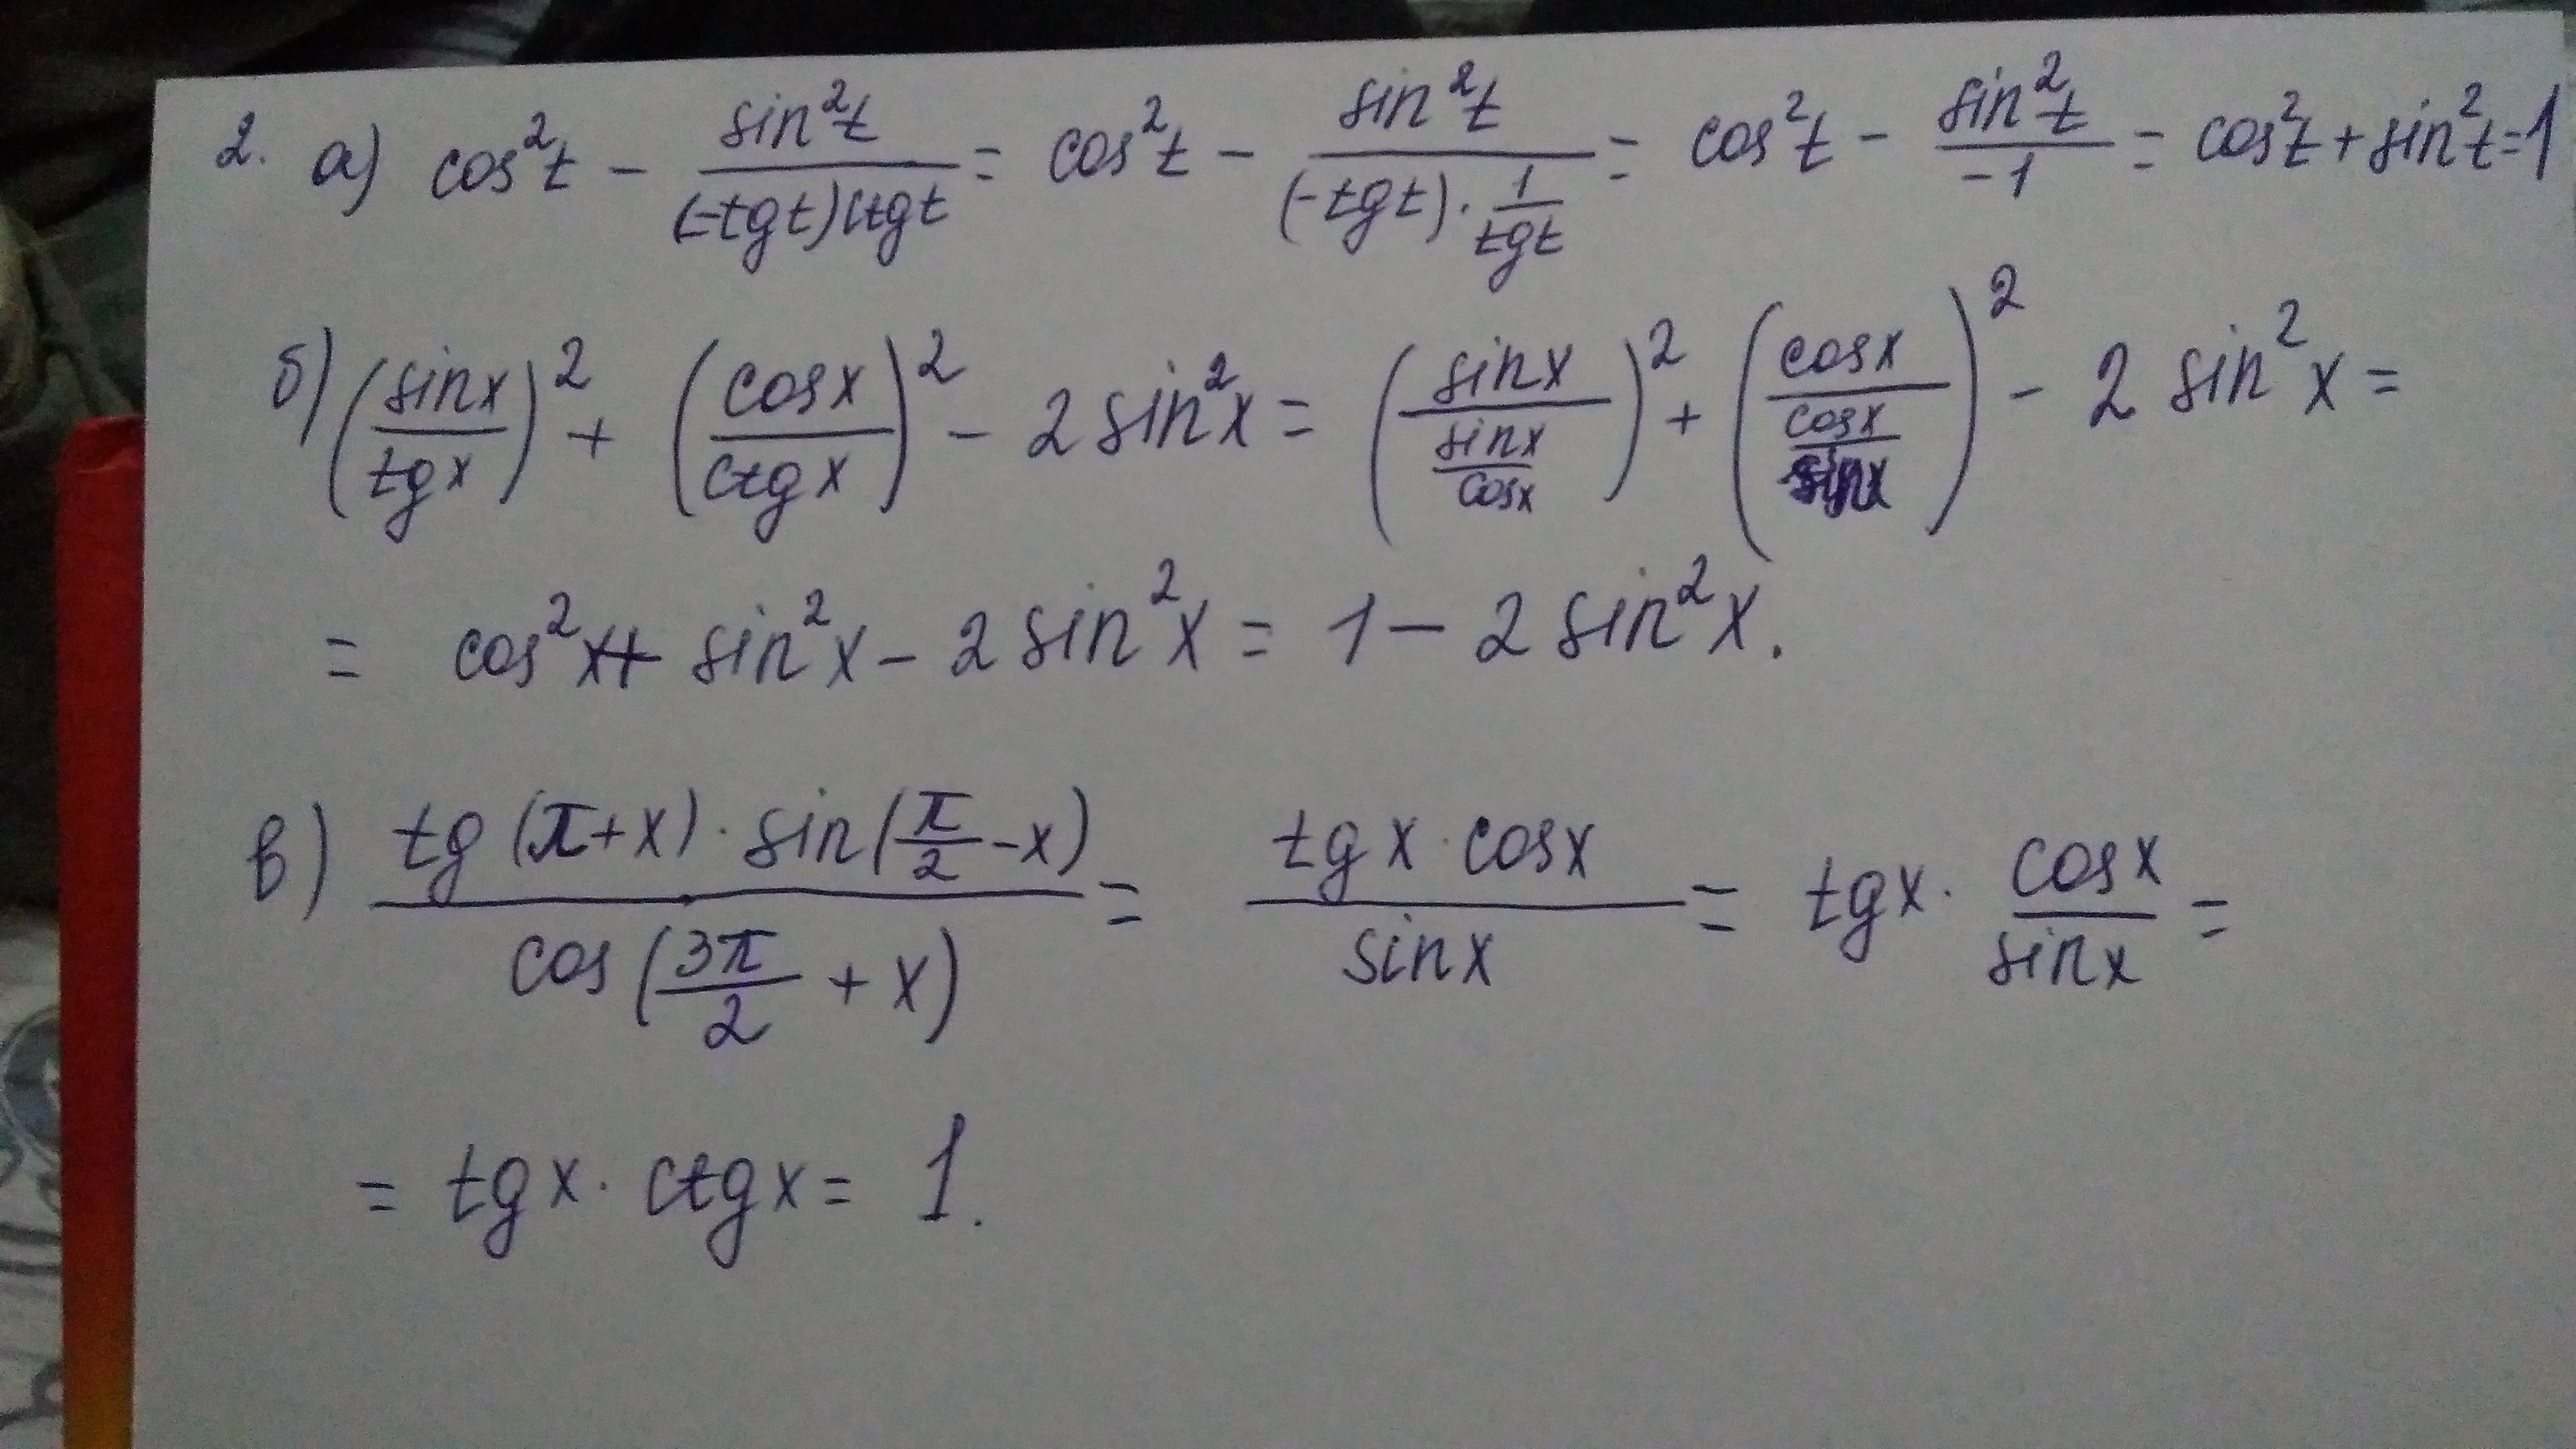 2. а) cos²t − sin²t/((−tgt)ctgt) = cos²t − sin²t/((−tgt)·1/tgt) = cos²t − sin²t/−1 = cos²t + sin²t = 1
б) (sinx/tgx)² + (cosx/ctgx)² − 2 sin²x = (sinx/(sinx/cosx))² + (cosx/(cosx/sinx))² − 2 sin²x =
= cos²x + sin²x − 2 sin²x = 1 − 2 sin²x.
в) (tg(π+x)·sin(π/2−x))/cos(3π/2 + x) = (tgx·cosx)/sinx = tgx·cosx/sinx =
= tgx·ctgx = 1.